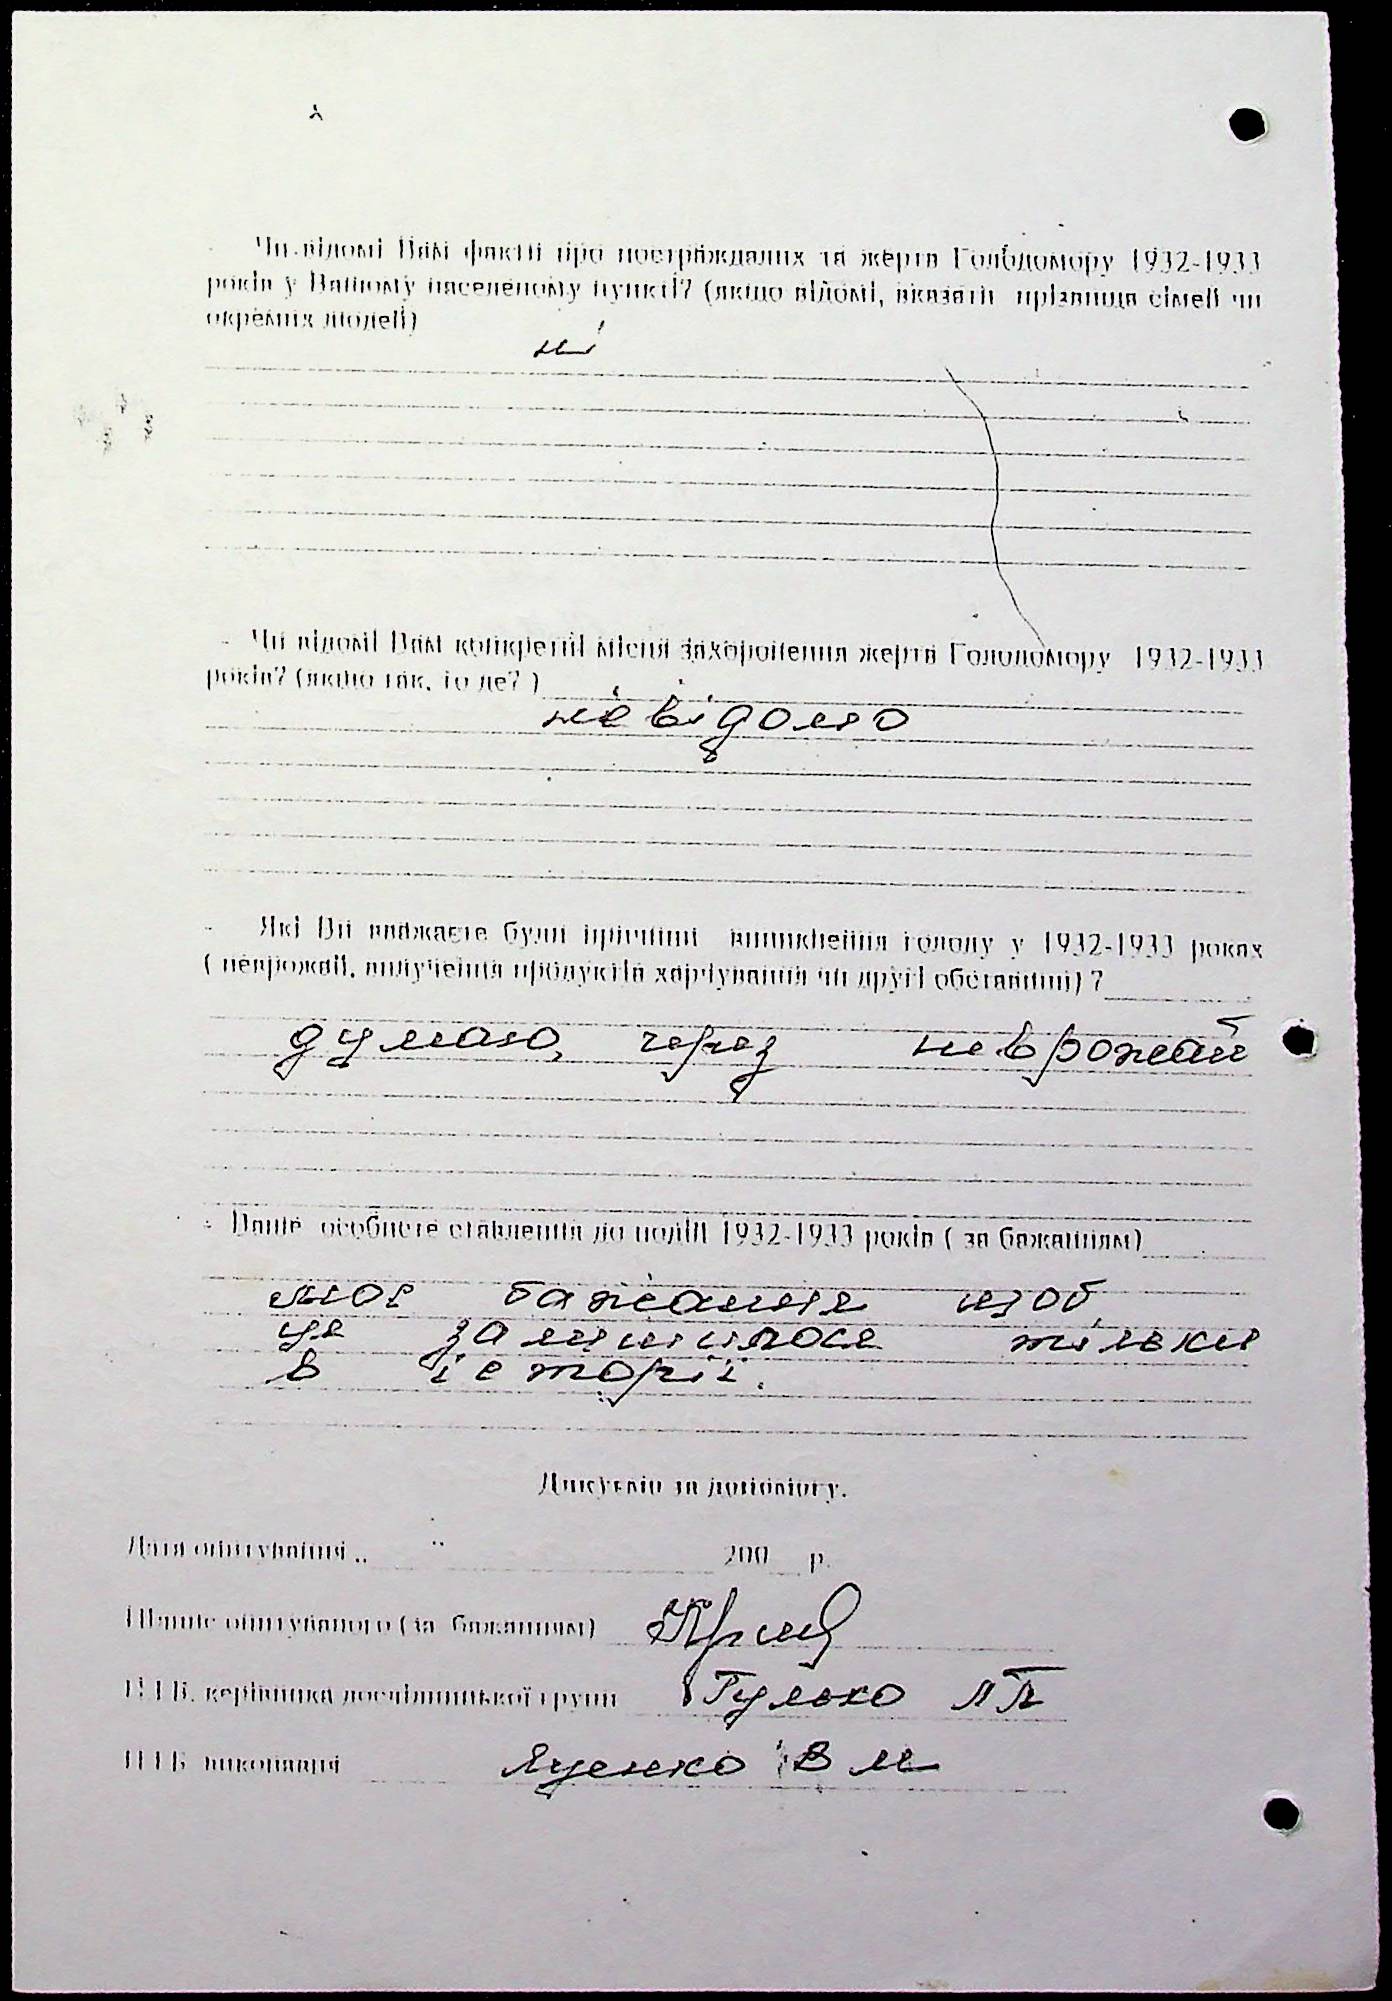 - Чи відомі Вам факти про постраждалих та жертв Голодомору 1932-1933
років у Вашому населеному пункті? (якщо відомі, вказати прізвища сімей чи
окремих людей)
ні
- Чи відомі Вам конкретні місця захоронення жертв Голодомору 1932-1933
років? (якщо так, то де?)
невідомо
- Які Ви вважаєте були причини виникнення голоду у 1932-1933 роках
( неврожай, вилучення продуктів харчування чи другі обставини) ?
думаю, через неврожай
- Ваше особисте ставлення до подій 1932-1933 років ( за бажанням)
моє бажання щоб
це залишилося тільки
в історії.
Дякуємо за допомогу.
Дата опитування „ " 200 р.
опитуваного (за бажанням)
П.І.Б. керівника дослідницької групи Гулько Л П
П І Б виконавця Яценко В М